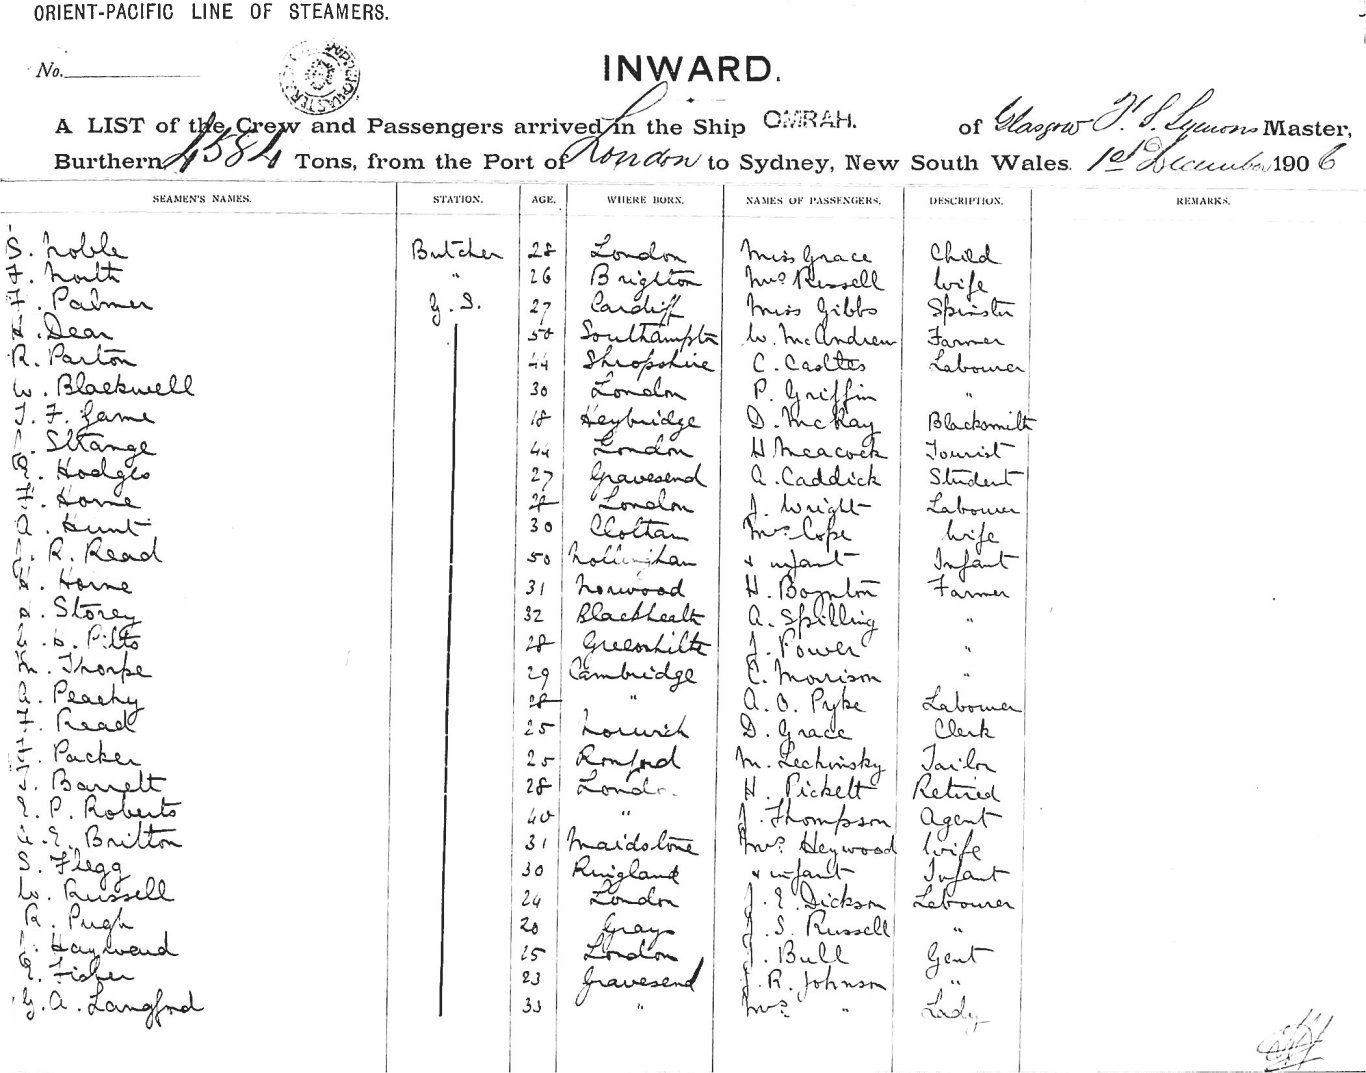 ORIENT-PACIFIC LINE OF STEAMERS.
No.
INWARD.
A LIST of the Crew and Passengers arrived in the Ship OMRAH. of Glasgow F. S. Symons Master,
Burthern 4584 Tons, from the Port of London to Sydney, New South Wales. 1st December 1906
SEAMEN'S NAMES. STATION. AGE. WHERE BORN. NAMES OF PASSENGERS. DESCRIPTION. REMARKS.
S. Noble Butcher 28 London Miss Grace Child
H. North " 26 Brighton Mrs Russell Wife
F. Palmer G. S. 27 Cardiff Miss Gibbs Spinster
Dean 50 Southampton W. McAndrew Farmer
R. Parton 44 Shropshire C. Castles Labourer
W. Blackwell 30 London P. Griffin "
T. F. Game 18 Heybridge D. McKay Blacksmith
Strange 44 London H Meacock Tourist
Hodges 27 Gravesend A. Caddick Student
F. Horne 28 London J. Wright Labourer
A. Hunt 30 Mrs Cope Wife
R. Read 50 Nottingham & infant Infant
Horne 31 Norwood H. Boynton Farmer
Storey 32 Blackheath A. Spilling "
Pitts 28 J. Power "
M. Thorpe 29 Cambridge C. Morrison "
A. Peachy 28 " A. O. Pyke Labourer
H. Read 25 Norwich D. Grace Clerk
H. Packer 25 Romford M. Lechinsky Tailor
T. Barrett 28 London H. Pickett Retired
E. P. Roberts 40 " J. Thompson Agent
E. Britton 31 Maidstone Mrs Heywood Wife
S. Flegg 30 Ringland & infant Infant
W. Russell 24 London J. E. Dickson Labourer
R. Pugh 20 Grays J. S. Russell "
Hayward 25 London J. Bull Gent
Fisher 23 Gravesend J. R. Johnson "
G. A. Langford 33 " Mrs " Lady